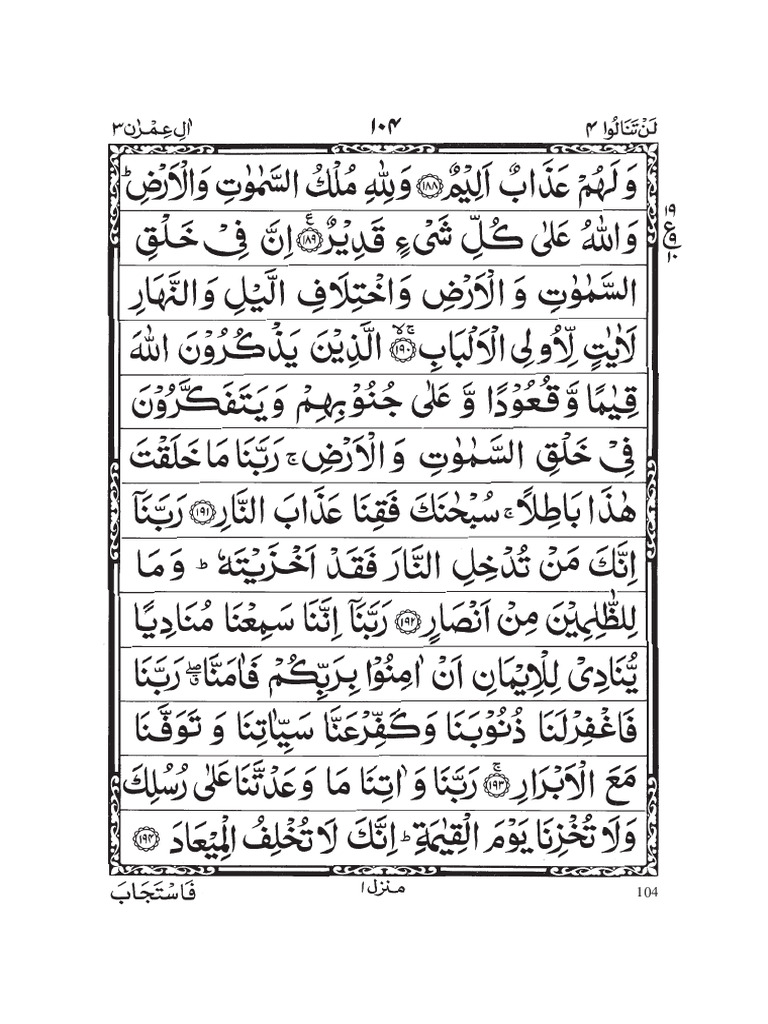 لَنْ تَنَالُوا ۴ ۱۰۴ اٰلِ عِمْرٰن ۳
وَلَهُمْ عَذَابٌ اَلِيْمٌ ۱۸۸ وَلِلّٰهِ مُلْكُ السَّمٰوٰتِ وَالْاَرْضِ ؕ
وَاللّٰهُ عَلٰى كُلِّ شَىْءٍ قَدِيْرٌ ۱۸۹ ع اِنَّ فِىْ خَلْقِ
۱۹ ع ۹ ۱۰
السَّمٰوٰتِ وَالْاَرْضِ وَاخْتِلَافِ الَّيْلِ وَالنَّهَارِ
لَاٰيٰتٍ لِّاُولِى الْاَلْبَابِ ۱۹۰ ۚۙ الَّذِيْنَ يَذْكُرُوْنَ اللّٰهَ
قِيٰمًا وَّقُعُوْدًا وَّعَلٰى جُنُوْبِهِمْ وَيَتَفَكَّرُوْنَ
فِىْ خَلْقِ السَّمٰوٰتِ وَالْاَرْضِ ۚ رَبَّنَا مَا خَلَقْتَ
هٰذَا بَاطِلًا ۚ سُبْحٰنَكَ فَقِنَا عَذَابَ النَّارِ ۱۹۱ رَبَّنَاۤ
اِنَّكَ مَنْ تُدْخِلِ النَّارَ فَقَدْ اَخْزَيْتَهٗ ؕ وَمَا
لِلظّٰلِمِيْنَ مِنْ اَنْصَارٍ ۱۹۲ رَبَّنَاۤ اِنَّنَا سَمِعْنَا مُنَادِيًا
يُّنَادِىْ لِلْاِيْمَانِ اَنْ اٰمِنُوْا بِرَبِّكُمْ فَاٰمَنَّا ۖۗ رَبَّنَا
فَاغْفِرْلَنَا ذُنُوْبَنَا وَكَفِّرْعَنَّا سَيِّاٰتِنَا وَتَوَفَّنَا
مَعَ الْاَبْرَارِ ۱۹۳ ۚ رَبَّنَا وَاٰتِنَا مَا وَعَدْتَّنَا عَلٰى رُسُلِكَ
وَلَا تُخْزِنَا يَوْمَ الْقِيٰمَةِ ؕ اِنَّكَ لَا تُخْلِفُ الْمِيْعَادَ ۱۹۴
104 منزل ۱ فَاسْتَجَابَ